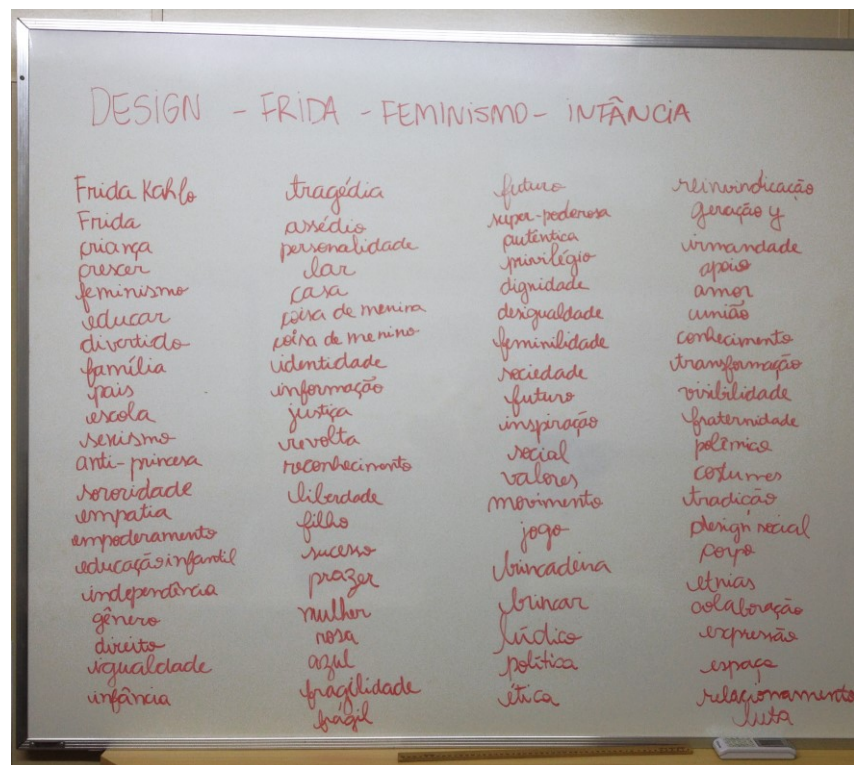 DESIGN - FRIDA - FEMINISMO - INFÂNCIA
Frida Kahlo
Frida
criança
crescer
feminismo
educar
divertido
família
pais
escola
sexismo
anti-princesa
sororidade
empatia
empoderamento
educação infantil
independência
gênero
direito
igualdade
infância
tragédia
assédio
personalidade
lar
casa
coisa de menina
coisa de menino
identidade
informação
justiça
revolta
reconhecimento
liberdade
filho
sucesso
prazer
mulher
rosa
azul
fragilidade
frágil
futuro
super-poderosa
autêntica
privilégio
dignidade
desigualdade
feminilidade
sociedade
futuro
inspiração
social
valores
movimento
jogo
brincadeira
brincar
lúdico
política
ética
reinvindicação
geração y
irmandade
apoio
amor
união
conhecimento
transformação
visibilidade
fraternidade
polêmica
costumes
tradição
design social
corpo
etnias
colaboração
expressão
espaço
relacionamento
luta